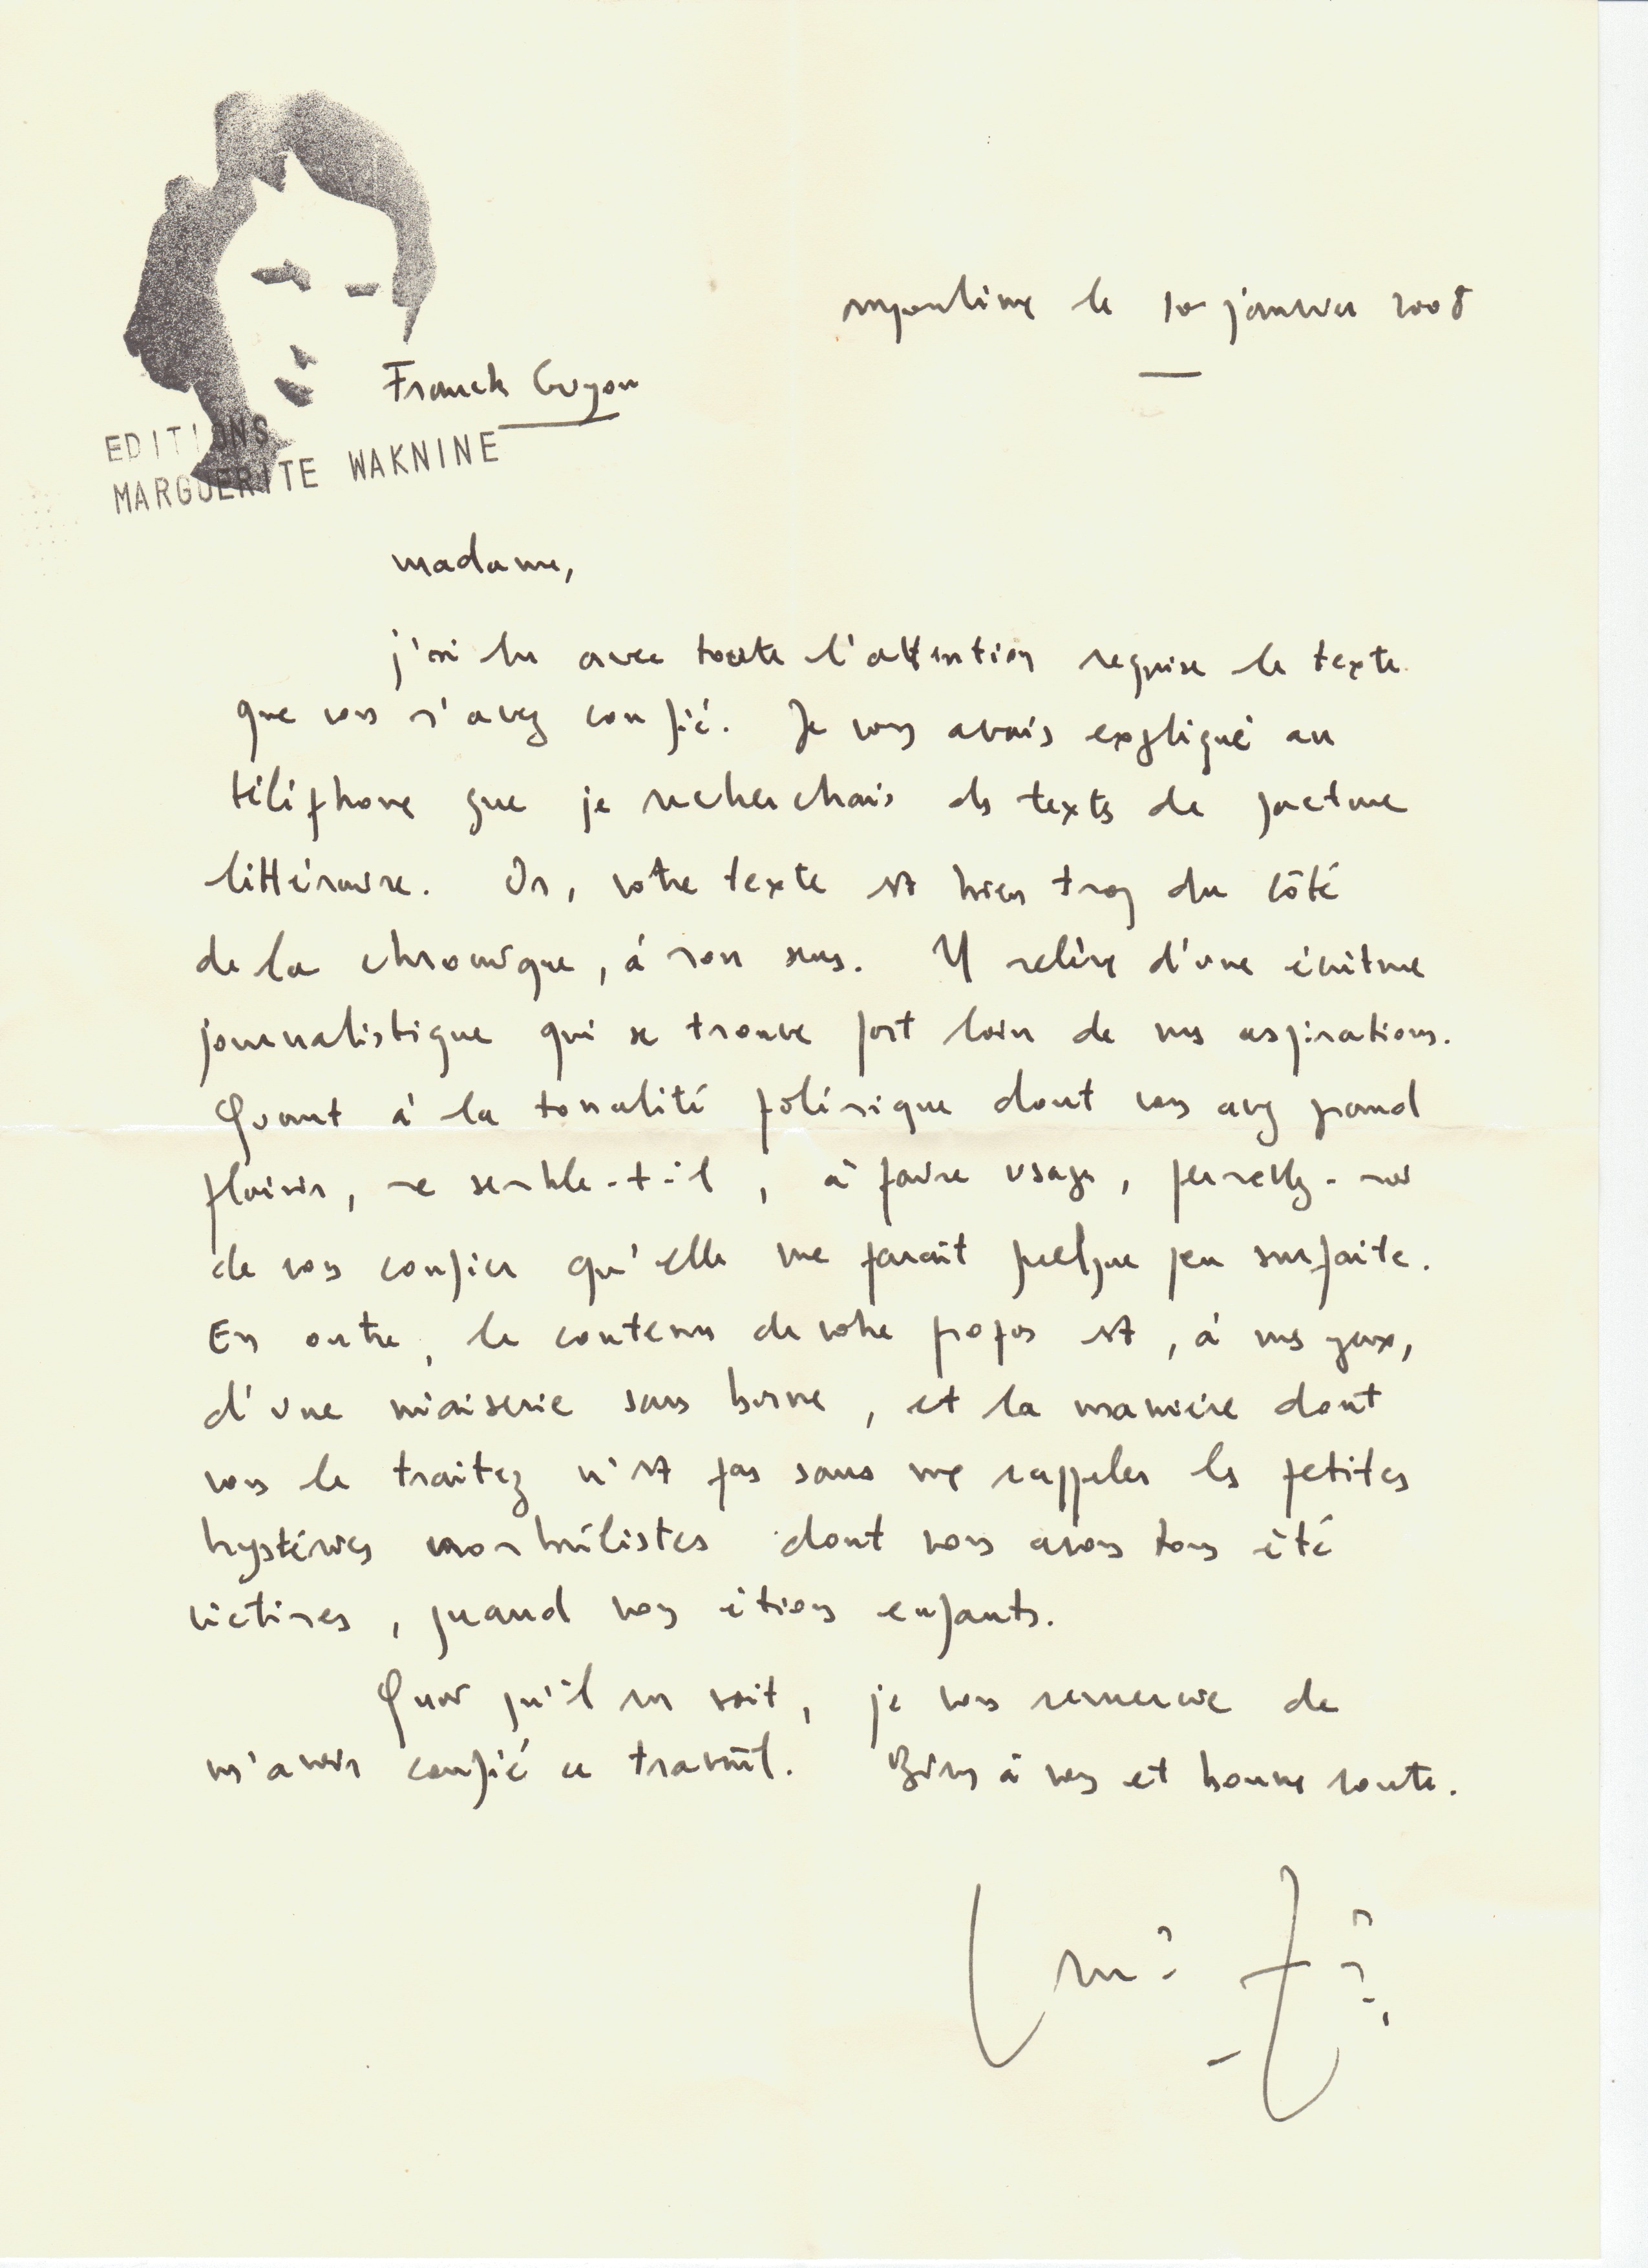 Franck Guyon
EDITIONS
MARGUERITE WAKNINE
le 10 janvier 2008
madame,
j'ai lu avec toute l'attention requise le texte
que vous m'avez confié. Je vous avais expliqué au
téléphone que je recherchais des textes de facture
littéraire. Or, votre texte est bien trop du côté
de la chronique, à mon sens. Il relève d'une écriture
journalistique qui se trouve fort loin de mes aspirations.
Quant à la tonalité polémique dont vous avez grand
plaisir, me semble-t-il, à faire usage, permettez-moi
de vous confier qu'elle me paraît quelque peu surfaite.
En outre, le contenu de votre propos est, à mes yeux,
d'une niaiserie sans borne, et la manière dont
vous le traitez n'est pas sans me rappeler les petites
hystéries nombrilistes dont nous avons tous été
victimes, quand nous étions enfants.
Quoi qu'il en soit, je vous remercie de
m'avoir confié ce travail. Bien à vous et bonne route.